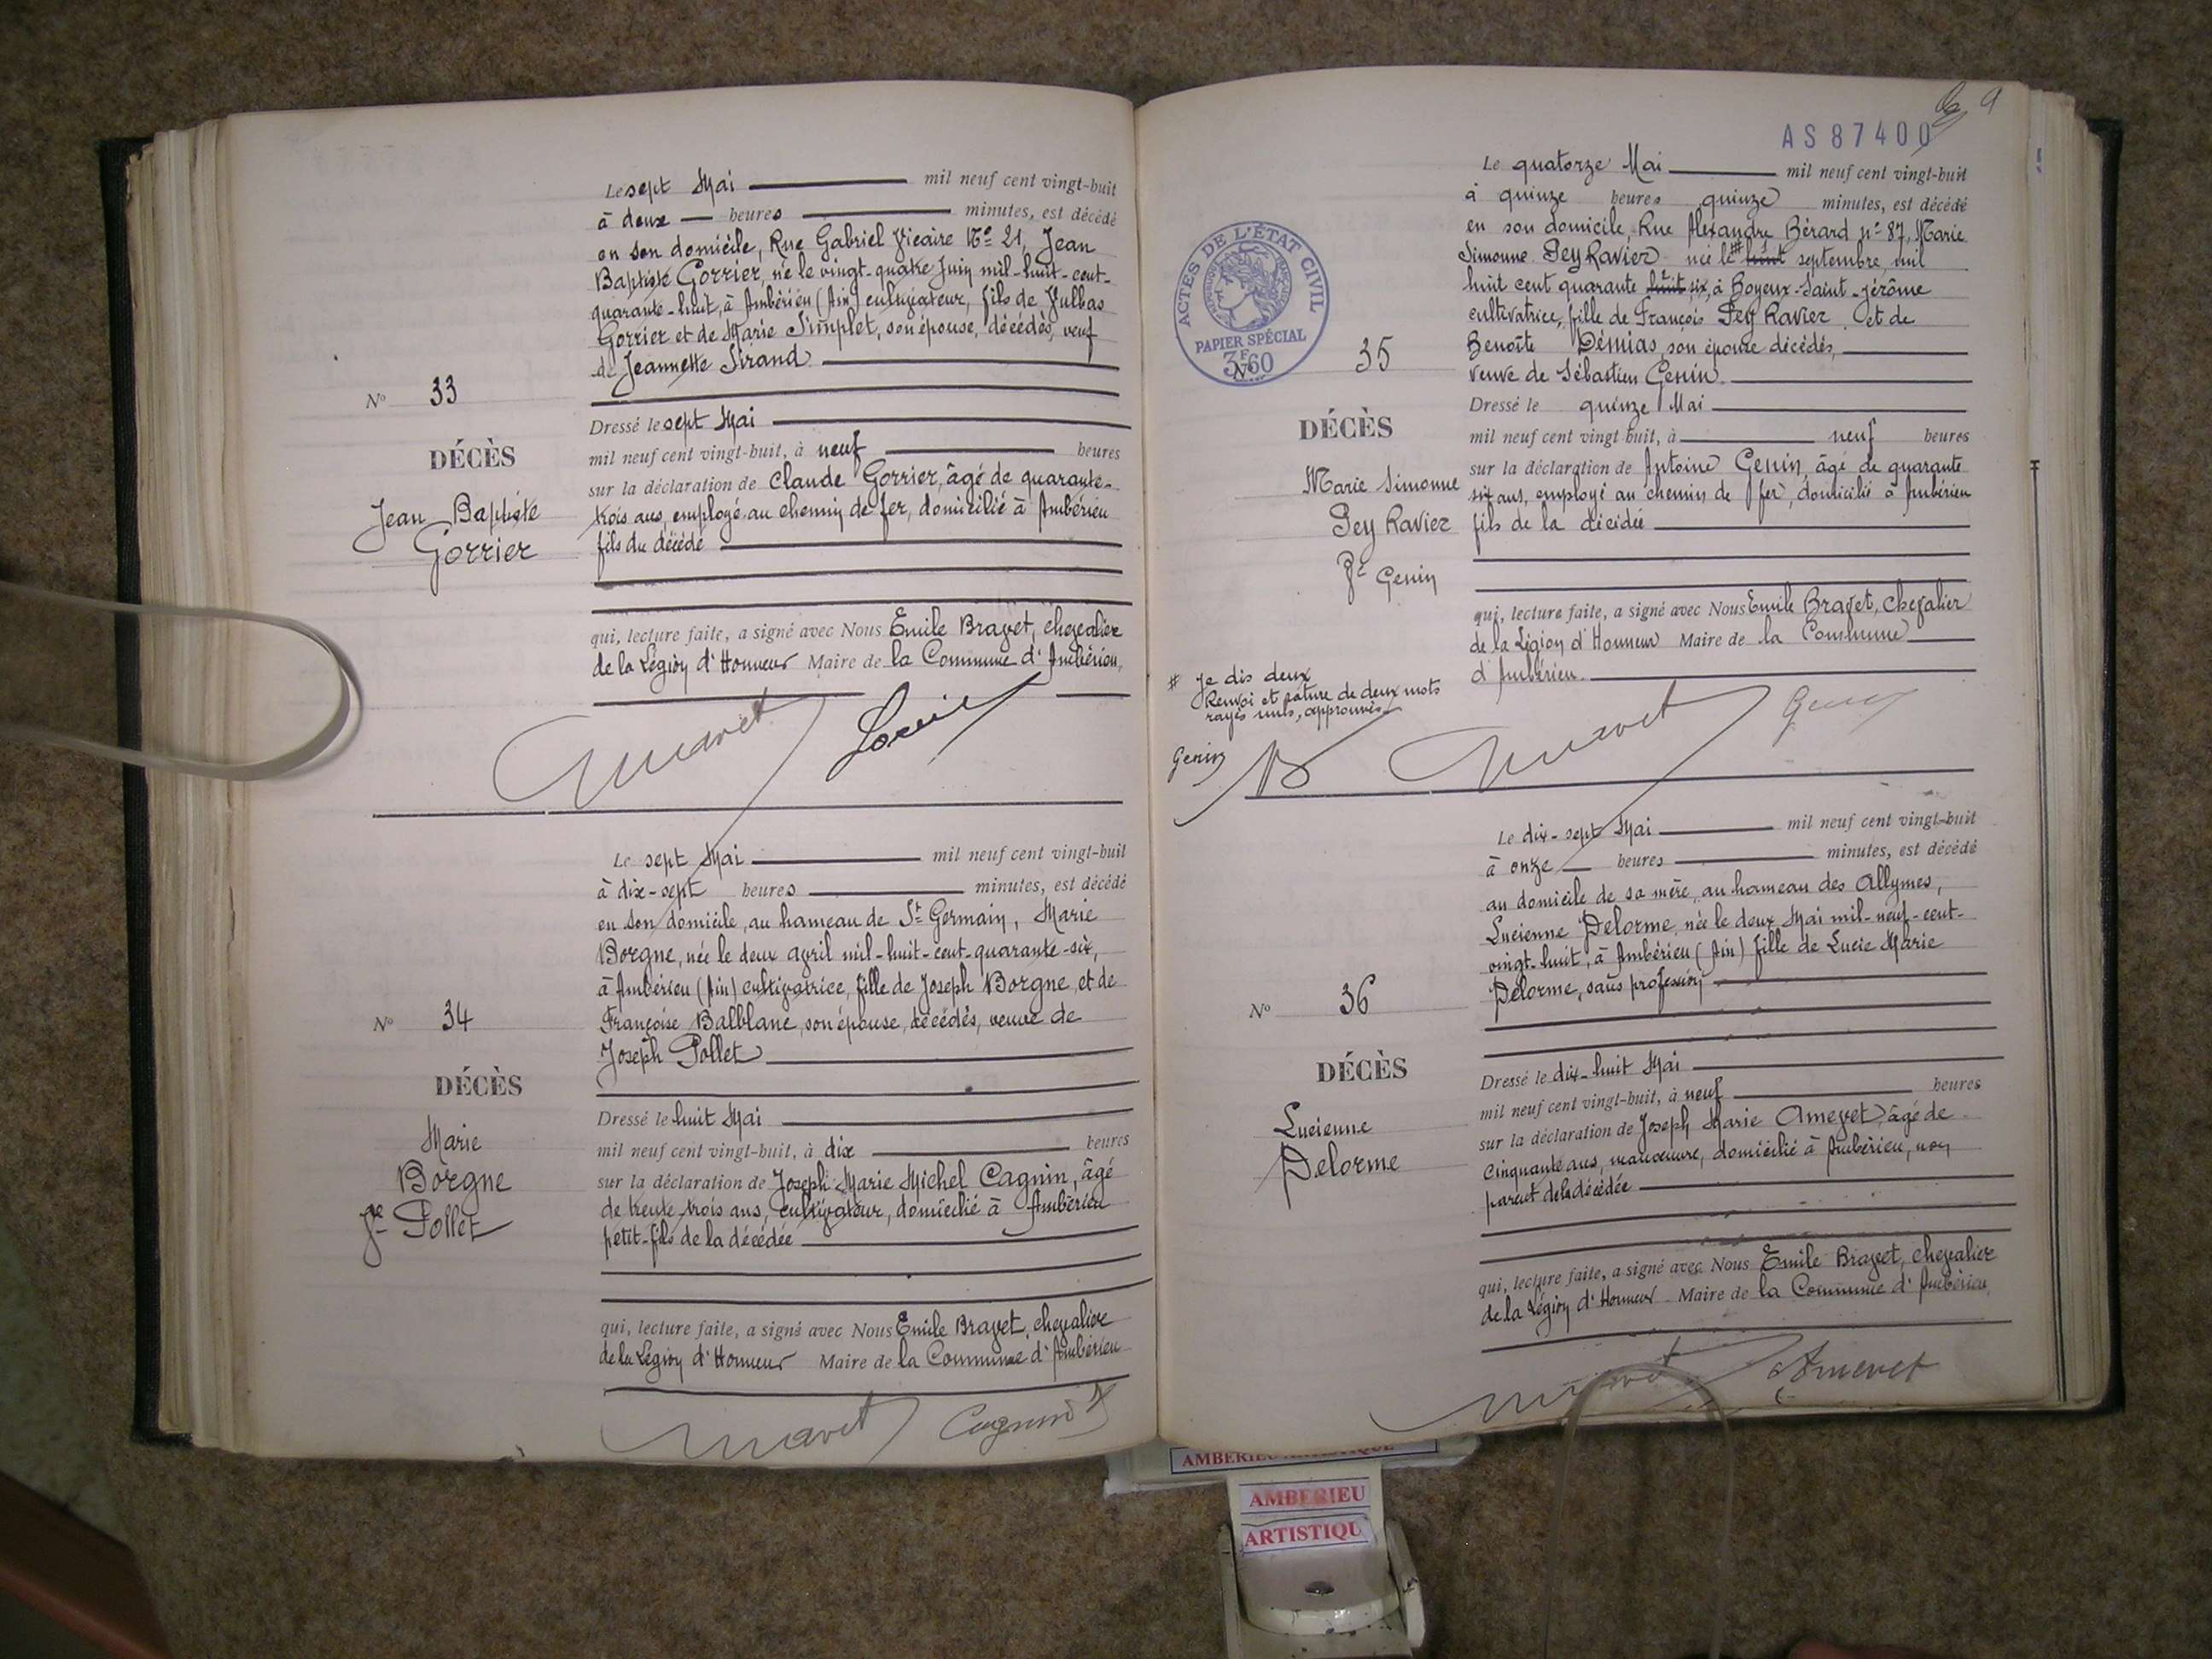 Le sept Mai mil neuf cent vingt-huit
à deux heures minutes, est décédé
en son domicile, Rue Gabriel Vicaire No 21, Jean
Baptiste Gorrier, né le vingt-quatre Juin mil-huit-cent-
quarante-huit, à Ambérieu (Ain) cultivateur, fils de Vulbas
Gorrier et de Marie Simplet, son épouse, décédés, veuf
de Jeannette Sirand
No 33
DÉCÈS
Jean Baptiste
Gorrier
Dressé le sept Mai
mil neuf cent vingt-huit, à neuf heures
sur la déclaration de Claude Gorrier, âgé de quarante-
trois ans, employé au chemin de fer, domicilié à Ambérieu
fils du décédé
qui, lecture faite, a signé avec Nous Emile Bravet, chevalier
de la Légion d'Honneur Maire de la Commune d'Ambérieu,
Le sept Mai mil neuf cent vingt-huit
à dix-sept heures minutes, est décédé
en son domicile, au hameau de St Germain, Marie
Borgne, née le deux avril mil-huit-cent-quarante-six,
à Ambérieu (Ain) cultivatrice, fille de Joseph Borgne, et de
Françoise Balblanc, son épouse, décédés, veuve de
Joseph Pollet
No 34
DÉCÈS
Marie
Borgne
Ve Pollet
Dressé le huit Mai
mil neuf cent vingt-huit, à dix heures
sur la déclaration de Joseph Marie Michel Cagnin, âgé
de trente trois ans, cultivateur, domicilié à Ambérieu
petit-fils de la décédée
qui, lecture faite, a signé avec Nous Emile Bravet, chevalier
de la Légion d'Honneur Maire de la Commune d'Ambérieu
Cagnin
9
AS87400
ACTES DE L'ÉTAT CIVIL
RÉPUBLIQUE FRANÇAISE
PAPIER SPÉCIAL
3F60
Le quatorze Mai mil neuf cent vingt-huit
à quinze heures quinze minutes, est décédé
en son domicile, Rue Alexandre Bérard no 87, Marie
Simonne Pey Ravier née le # huit septembre, mil
huit cent quarante huit six, à Boyeux-Saint-Jérôme
cultivatrice, fille de François Pey Ravier et de
Benoîte Démias, son épouse décédés,
veuve de Sébastien Genin.
No 35
DÉCÈS
Marie Simonne
Pey Ravier
Ve Genin
Dressé le quinze Mai
mil neuf cent vingt-huit, à neuf heures
sur la déclaration de Antoine Genin, âgé de quarante
six ans, employé au chemin de fer, domicilié à Ambérieu
fils de la décédée
qui, lecture faite, a signé avec Nous Emile Bravet, Chevalier
de la Légion d'Honneur Maire de la Commune
d'Ambérieu.
# Je dis deux
Renvoi et rature de deux mots
rayés nuls, approuvés
Genin
Le dix-sept Mai mil neuf cent vingt-huit
à onze heures minutes, est décédé
au domicile de sa mère, au hameau des Allymes,
Lucienne Delorme, née le deux Mai mil-neuf-cent-
vingt-huit, à Ambérieu (Ain) fille de Lucie Marie
Delorme, sans profession
No 36
DÉCÈS
Lucienne
Delorme
Dressé le dix-huit Mai
mil neuf cent vingt-huit, à neuf heures
sur la déclaration de Joseph Marie Amevet, âgé de
cinquante ans, manœuvre, domicilié à Ambérieu, non
parent de la décédée
qui, lecture faite, a signé avec Nous Emile Bravet, chevalier
de la Légion d'Honneur Maire de la Commune d'Ambérieu,
Amevet
AMBERIEU ARTISTIQUE
AMBERIEU
ARTISTIQU